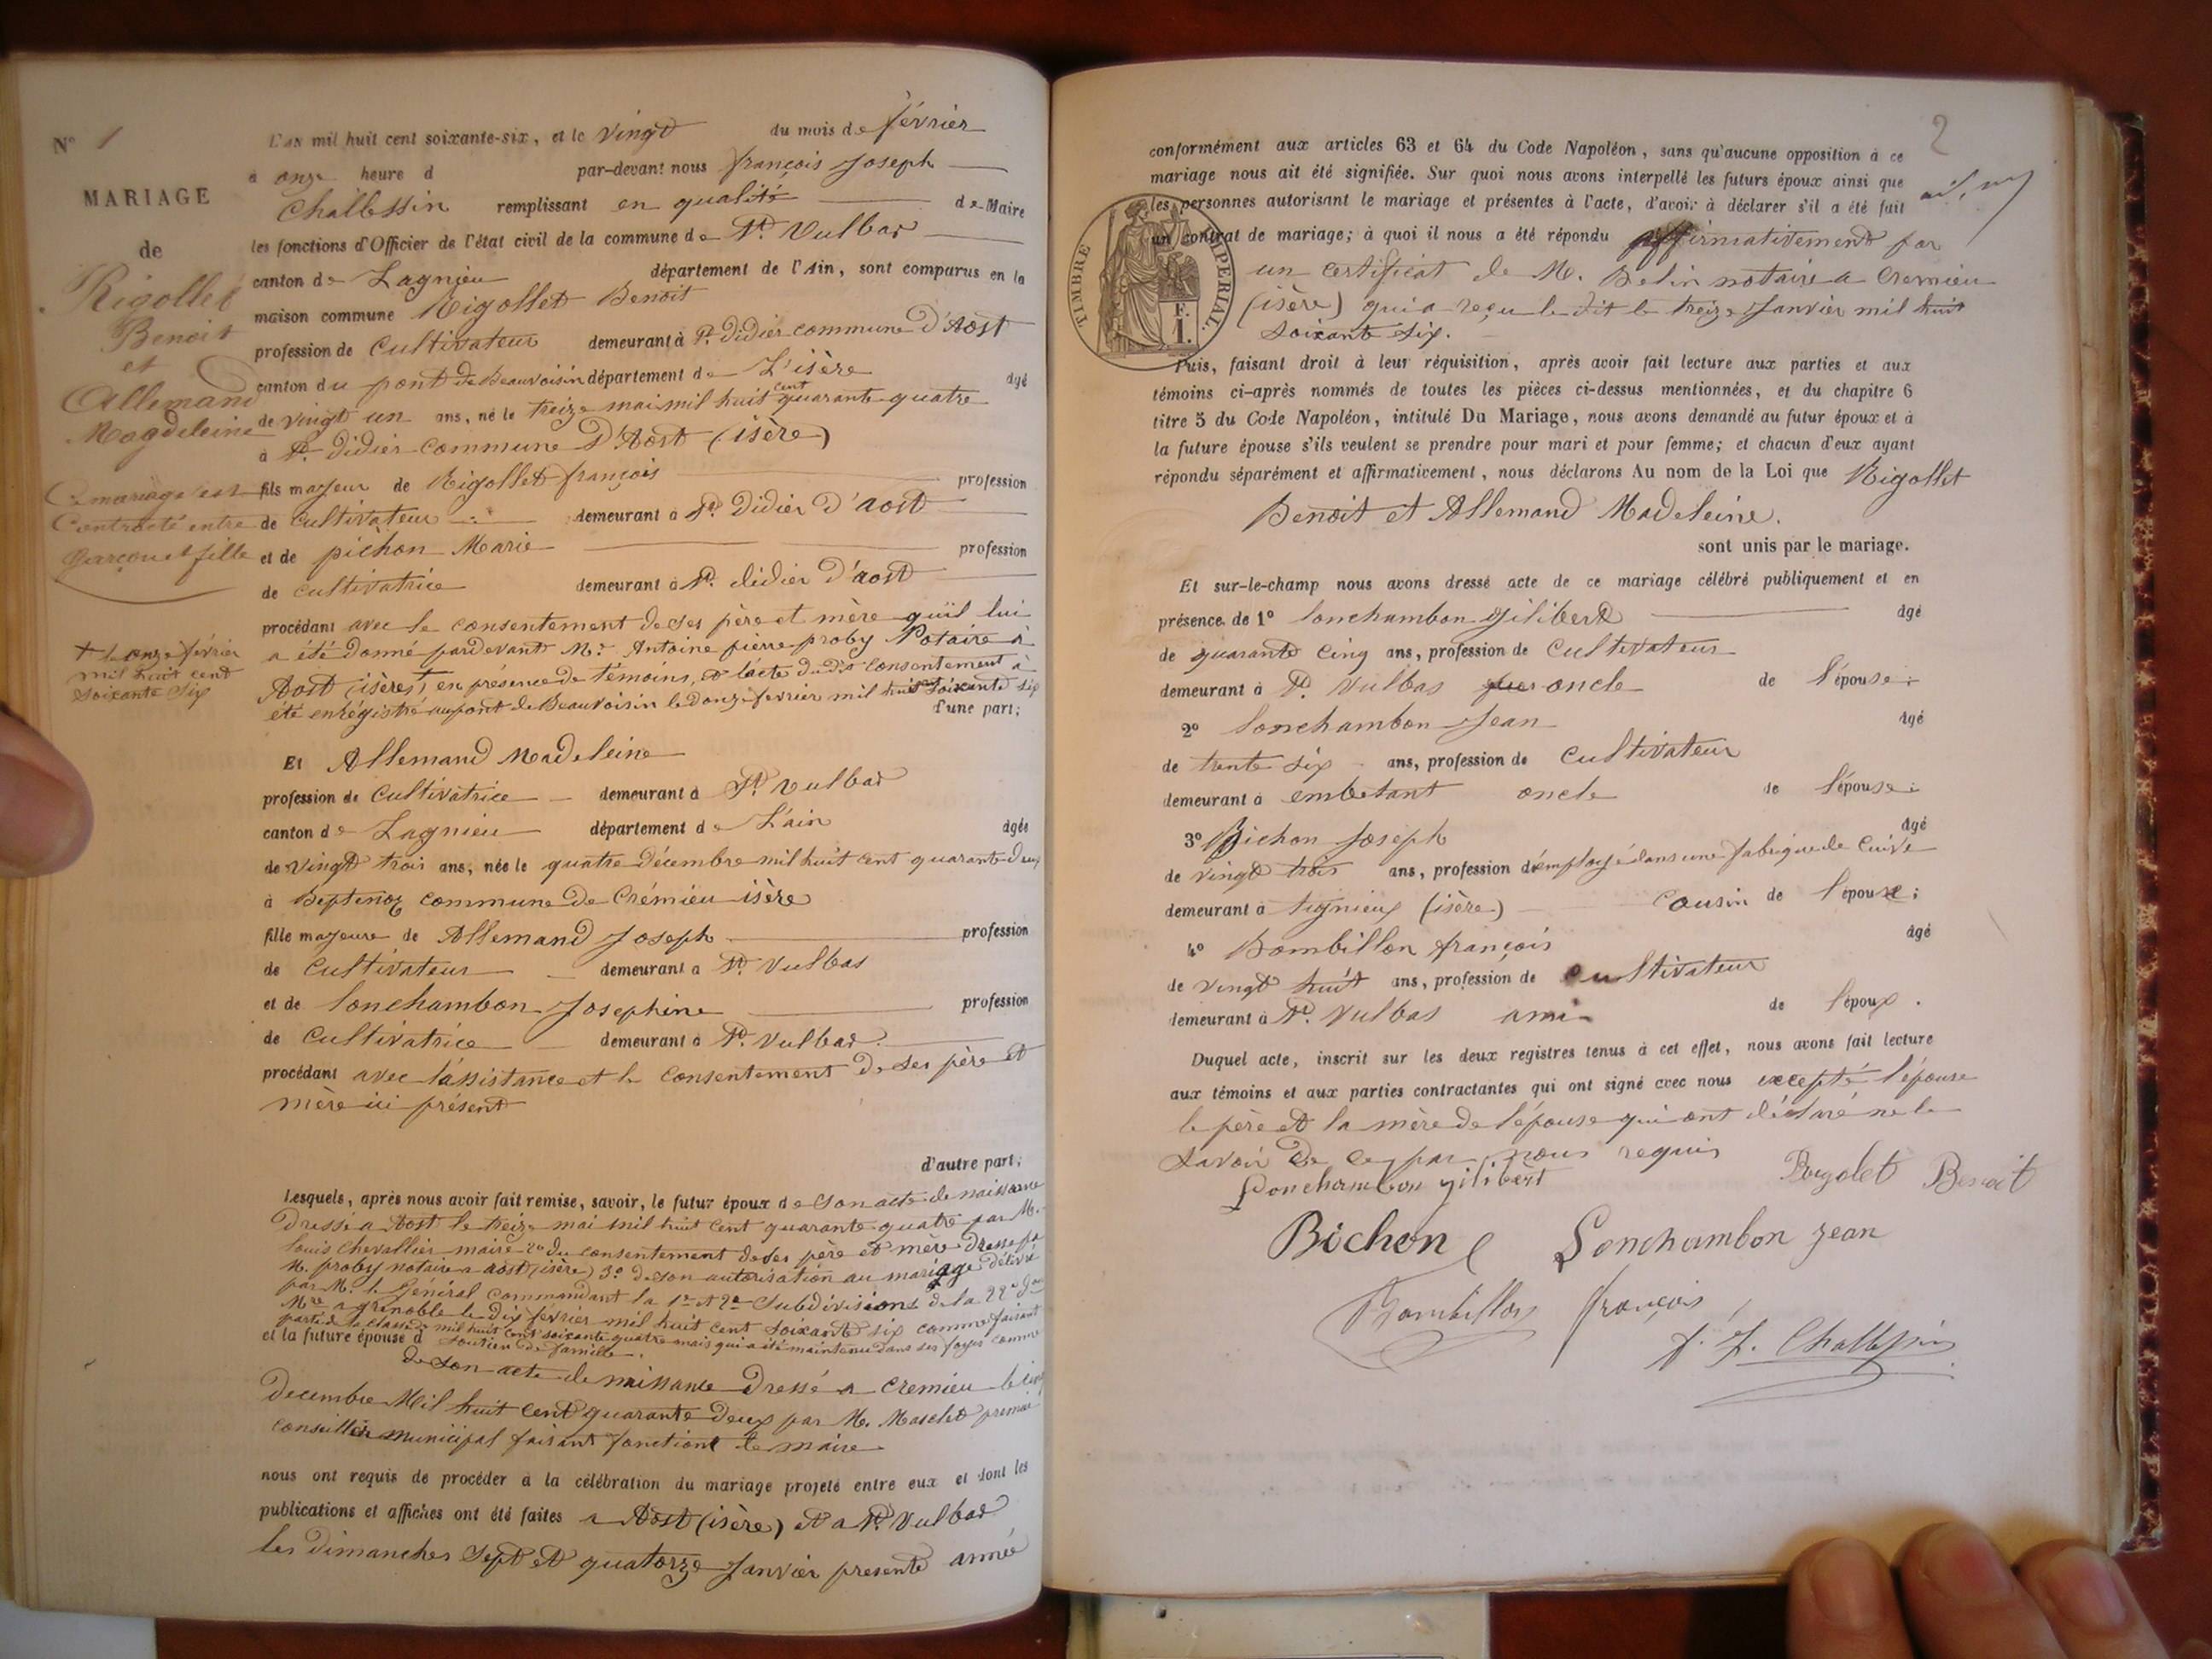 N° 1
MARIAGE
de
Rigollet
Benoit
et
Allemand
Magdeleine
Ce mariage est
Contracté entre
garçon et fille
+ le onze février
mil huit cent
soixante six
L'AN mil huit cent soixante-six, et le vingt du mois de février
à onze heure d par-devant nous françois Joseph
Challessin remplissant en qualité de Maire
les fonctions d'Officier de l'état civil de la commune de St. Vulbas
canton de Lagnieu département de l'Ain, sont comparus en la
maison commune Rigollet Benoit
profession de cultivateur demeurant à St. Didier commune D'Aost
canton du pont de Beauvoisin département de L'isère âgé
de vingt un ans, né le treize mai mil huit cent quarante quatre
à St. Didier commune D'Aost (isère)
fils majeur de Rigollet françois profession
de cultivateur demeurant à St. Didier D'aost
et de pichon Marie profession
de cultivatrice demeurant à St. didier D'aost
procédant avec le consentement de ses père et mère qu'il lui
a été donné pardevant Mr. Antoine pierre proby Notaire à
Aost (isère) + en présence de témoins, et l'acte dudit consentement à
été enrégistré au pont de Beauvoisin le donze fevrier mil huit soixante six
d'une part;
Et Allemand Madeleine
profession de cultivatrice demeurant à St. vulbas
canton de Lagnieu département de L'ain âgée
de vingt trois ans, née le quatre décembre mil huit cent quarante deux
à Beptenoz commune de Crémieu isère
fille majeure de Allemand Joseph profession
de cultivateur demeurant à St. Vulbas
et de Lonchambon Josephine profession
de cultivatrice demeurant à St. Vulbas
procédant avec l'assistance et le consentement De ses père et
mère ici présent
d'autre part;
Lesquels, après nous avoir fait remise, savoir, le futur époux de son acte de naissance
Dressé a Aost le treize mai mil huit cent quarante quatre par M.
Louis Chevallier maire 2° du consentement de ses père et mère Dressé par
M. proby notaire a aost (isère) 3° de son autorisation au mariage délivré
par M. le Général commandant la 1re et 2e subdivisions de la 22e Don
Mre a grenoble le dix février mil huit cent soixante six comme faisant
partie de la classe de mil huit cent soixante quatre mais qui a été maintenu dans ses foyers comme
et la future épouse d soutien de famille.
de son acte de naissance Dressé a Cremieu le cinq
Decembre Mil huit cent quarante deux par M. Maselet premier
conseiller municipal faisant fonctions de maire
nous ont requis de procéder à la célébration du mariage projeté entre eux et dont les
publications et affiches ont été faites a Aost (isère) et a St. Vulbas
les dimanches sept et quatorze Janvier presente année
2
conformément aux articles 63 et 64 du Code Napoléon, sans qu'aucune opposition à ce
mariage nous ait été signifiée. Sur quoi nous avons interpellé les futurs époux ainsi que
les personnes autorisant le mariage et présentes à l'acte, d'avoir à déclarer s'il a été fait
un contrat de mariage; à quoi il nous a été répondu affirmativement par
TIMBRE IMPÉRIAL.
F. 1.
un certificat de M. Belin notaire a Cremieu
(isère) qui a reçu le dit le treize Janvier mil huit
soixante six.
Puis, faisant droit à leur réquisition, après avoir fait lecture aux parties et aux
témoins ci-après nommés de toutes les pièces ci-dessus mentionnées, et du chapitre 6
titre 5 du Code Napoléon, intitulé Du Mariage, nous avons demandé au futur époux et à
la future épouse s'ils veulent se prendre pour mari et pour femme; et chacun d'eux ayant
répondu séparément et affirmativement, nous déclarons Au nom de la Loi que Rigollet
Benoit et Allemand Madeleine.
sont unis par le mariage.
Et sur-le-champ nous avons dressé acte de ce mariage célébré publiquement et en
présence de 1° Lonchambon gilibert âgé
de quarante cinq ans, profession de cultivateur
demeurant à St. Vulbas oncle de l'épouse;
2° Lonchambon Jean âgé
de trente six ans, profession de cultivateur
demeurant à embetant oncle de l'épouse;
3° Bichon Joseph âgé
de vingt trois ans, profession d'employé dans une fabrique de cuivre
demeurant à tignieux (isère) cousin de l'épouse;
4° Bombillon françois âgé
de vingt huit ans, profession de cultivateur
demeurant à St. Vulbas ami de l'époux.
Duquel acte, inscrit sur les deux registres tenus à cet effet, nous avons fait lecture
aux témoins et aux parties contractantes qui ont signé avec nous excepté l'épouse
le père et la mère de l'épouse qui ont déclaré ne le
savoir de ce par nous requis
Lonchambon gilibert Rigolet Benoit
Bichon Lonchambon jean
Bombillon françois
f. J. Challessin